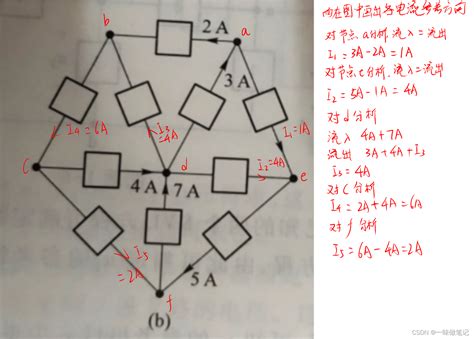 2A
b
a
3A
I₄=6A
I₃
=4A
I₁=1A
c
d
e
4A
7A
I₂=4A
I₅
=2A
5A
f
(b)
对节点a分析,流入=流出
I₁=3A-2A=1A
对节点e分析,流入=流出
I₂=5A-1A=4A
对d分析
流入 4A+7A
流出 3A+4A+I₃
I₃=4A
对C分析
I₄=2A+4A=6A
对f分析
I₅=6A-4A=2A
CSDN @一味做笔记